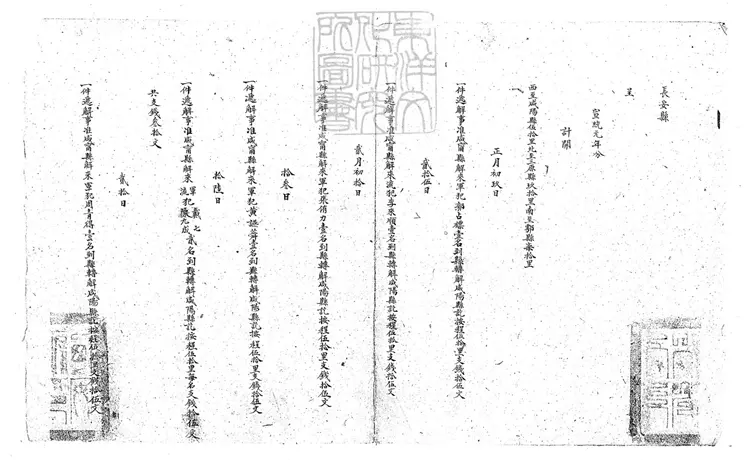 長安縣
呈
宣統元年分
計開
西至咸陽縣伍拾里北至三原縣玖拾里南至鄠縣柒拾里
正月初玖日
一件遞解事准咸甯縣解來軍犯鄒占標壹名到縣轉解咸陽縣訖按程伍拾里支錢拾伍文
貳拾伍日
一件遞解事准咸甯縣解來流犯李來順壹名到縣轉解咸陽縣訖按程伍拾里支錢拾伍文
貳月初拾日
一件遞解事准咸甯縣解來軍犯張俏力壹名到縣轉解咸陽縣訖按程伍拾里支錢拾伍文
拾叁日
一件遞解事准咸甯縣解來軍犯黃謳壹名到縣轉解咸陽縣訖按程伍拾里支錢拾伍文
拾陸日
一件遞解事准咸甯縣解來軍流犯戴七九成貳名到縣轉解咸陽縣訖按程伍拾里每名支錢拾伍文
共支錢叁拾文
貳拾日
一件遞解事准咸甯縣解來軍犯周青得壹名到縣轉解咸陽縣訖按程伍拾里支錢拾伍文
東洋文化研究所圖書